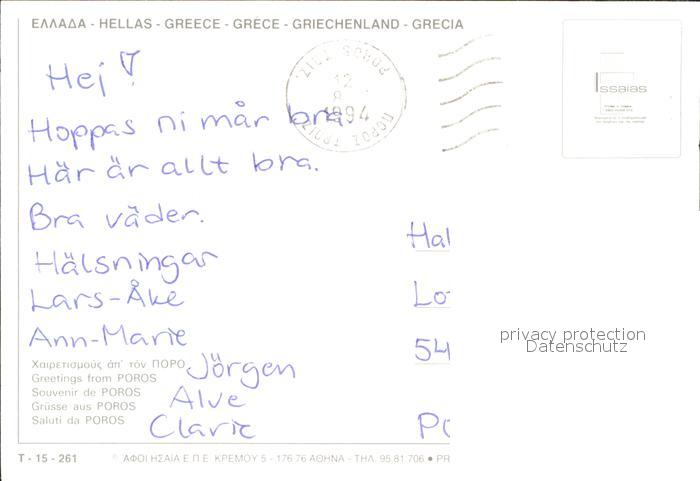 ΕΛΛΑΔΑ - HELLAS - GREECE - GRÈCE - GRIECHENLAND - GRECIA
Hej!
Hoppas ni mår bra.
Här är allt bra.
Bra väder.
Hälsningar
Lars-Åke
Ann-Marie
Jörgen
Alve
ΠΟΡΟΣ
POROS
12
1994
ssaias
Hal
Lo
54
privacy protection
Datenschutz
Χαιρετισμούς ἀπ' τόν ΠΟΡΟ
Greetings from POROS
Souvenir de POROS
Grüsse aus POROS
Saluti da POROS
T - 15 - 261
© ΑΦΟΙ ΗΣΑΙΑ Ε.Π.Ε. ΚΡΕΜΟΥ 5 - 176 76 ΑΘΗΝΑ - ΤΗΛ. 95.81.706 • PR